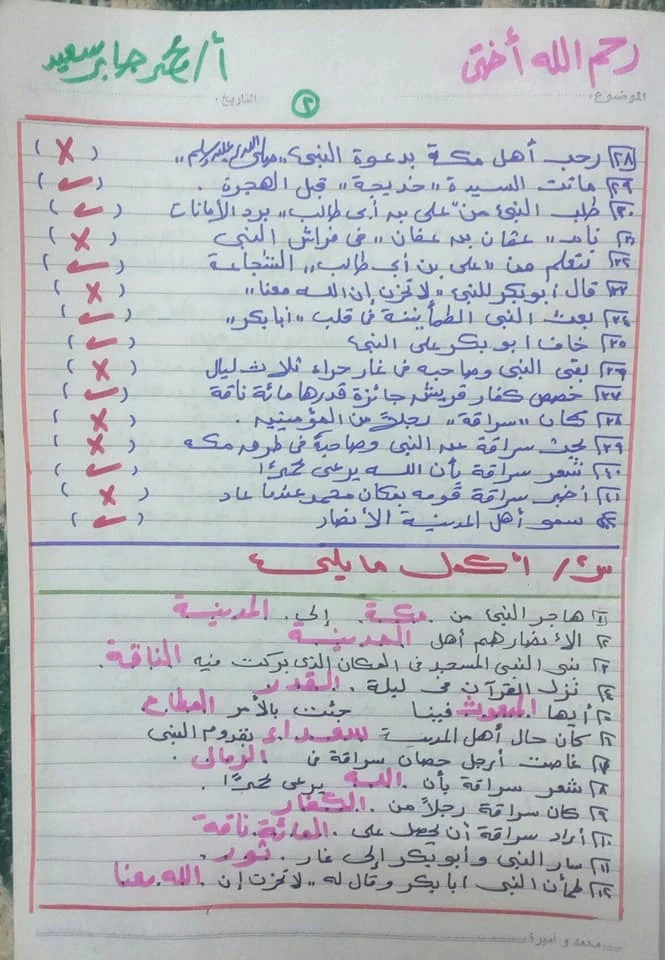 رحم الله أختى
أ/ محمد جابر سعيد
الموضوع:
التاريخ:
٢
٢٨ رحب أهل مكة بدعوة النبى "صلى الله عليه وسلم" ( × )
٢٩ ماتت السيدة "خديجة" قبل الهجرة . ( ✓ )
٣٠ طلب النبى من "على بن أبى طالب" برد الأمانات ( ✓ )
٣١ نام "عثمان بن عفان" فى فراش النبى ( × )
٣٢ نتعلم من "على بن أبى طالب" الشجاعة ( ✓ )
٣٣ قال أبو بكر للنبى "لا تحزن إن الله معنا" ( × )
٣٤ بعث النبى الطمأنينة فى قلب "أبا بكر" ( ✓ )
٣٥ خاف أبو بكر على النبى ( ✓ )
٣٦ بقى النبى وصاحبه فى غار حراء ثلاث ليال ( × )
٣٧ خصص كفار قريش جائزة قدرها مائة ناقة ( ✓ )
٣٨ كان "سراقة" رجلاً من المؤمنين . ( × )
٣٩ بحث سراقة عن النبى وصاحبه فى طرق مكة ( × )
٤٠ شعر سراقة بأن الله يرعى محمدًا ( ✓ )
٤١ أخبر سراقة قومه بمكان محمد عندما عاد ( × )
٤٢ سمو أهل المدينة الأنصار ( ✓ )
س٢/ أكمل ما يلى
١ هاجر النبى من مكة إلى المدينة
٢ الأنصار هم أهل المدينة
٣ بنى النبى المسجد فى المكان الذى بركت فيه الناقة .
٤ نزل القرآن فى ليلة . القدر
٥ أيها المبعوث فينا جئت بالأمر المطاع
٦ كان حال أهل المدينة سعداء بقدوم النبى
٧ غاصت أرجل حصان سراقة فى الرمال .
٨ شعر سراقة بأن الله يرعى محمدًا .
٩ كان سراقة رجلاً من . الكفار
١٠ أراد سراقة أن يحصل على . المائة ناقة
١١ سار النبى وأبو بكر إلى غار . ثور .
١٢ طمأن النبى أبا بكر وقال له "لا تحزن إن الله معنا
محمد و أميرة